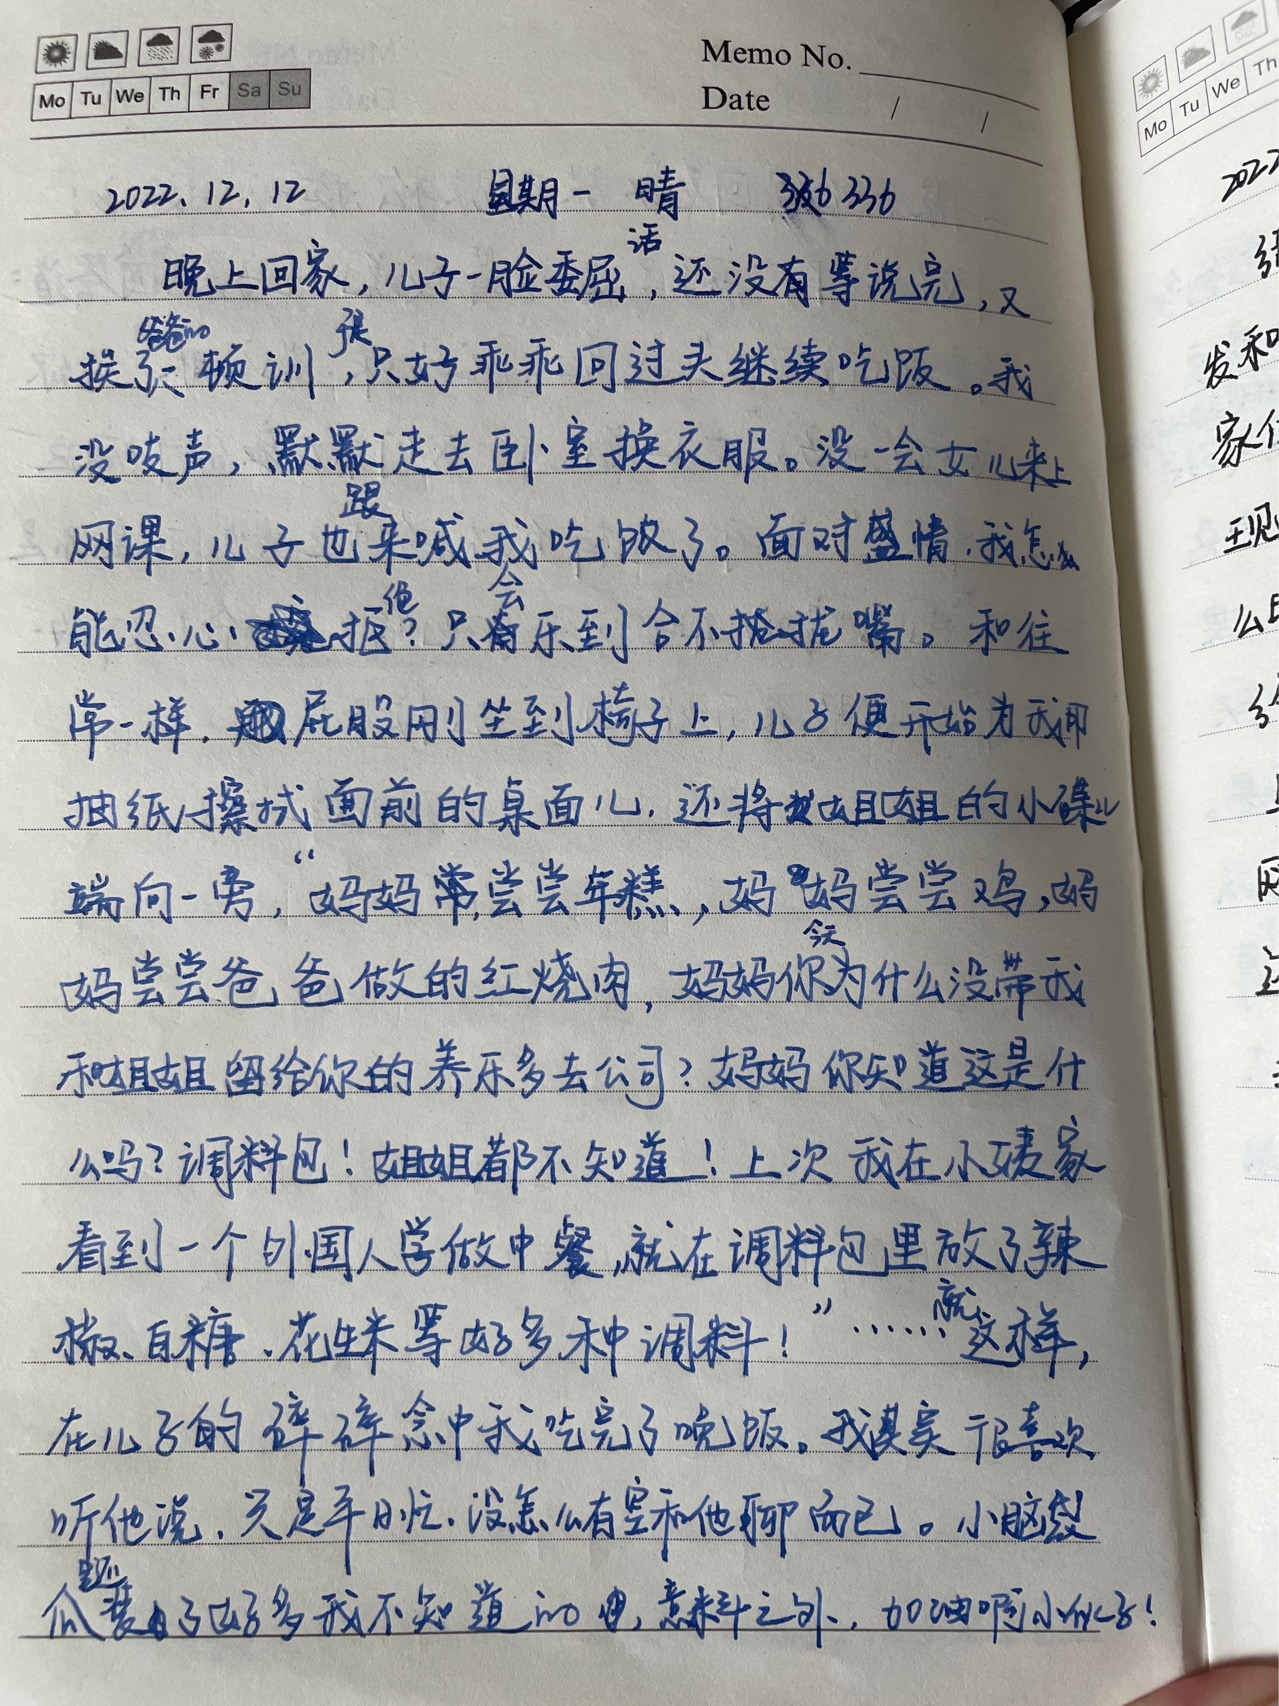 Memo No.
Mo Tu We Th Fr Sa Su
Date / /
2022.12.12 星期一 晴 336
晚上回家,儿子一脸委屈,话还没有等说完,又
挨了爸爸的一顿训,只好乖乖回过头继续吃饭。我
没吱声,默默走去卧室换衣服。没一会女儿来上
网课,儿子也跟来喊我吃饭了。面对盛情,我怎么
能忍心拒他?只会乐到合不拢嘴。和往
常一样,屁股刚坐到椅子上,儿子便开始为我
抽纸擦拭面前的桌面儿,还将姐姐的小碟儿
端向一旁,“妈妈尝尝年糕,妈妈尝尝鸡,妈
妈尝尝爸爸做的红烧肉,妈妈你今天为什么没带我
和姐姐留给你的养乐多去公司?妈妈你知道这是什
么吗?调料包!姐姐都不知道!上次我在小姨家
看到一个外国人学做中餐,就在调料包里放了辣
椒、白糖、花生米等好多种调料!”……就这样,
在儿子的碎碎念中我吃完了晚饭。我其实很喜欢
听他说,只是平日忙,没怎么有空和他聊而已。小脑袋
瓜装了好多我不知道的,意料之外,加油啊小伙子!
Mo Tu We Th
2022
发和
家
现
么
网
还